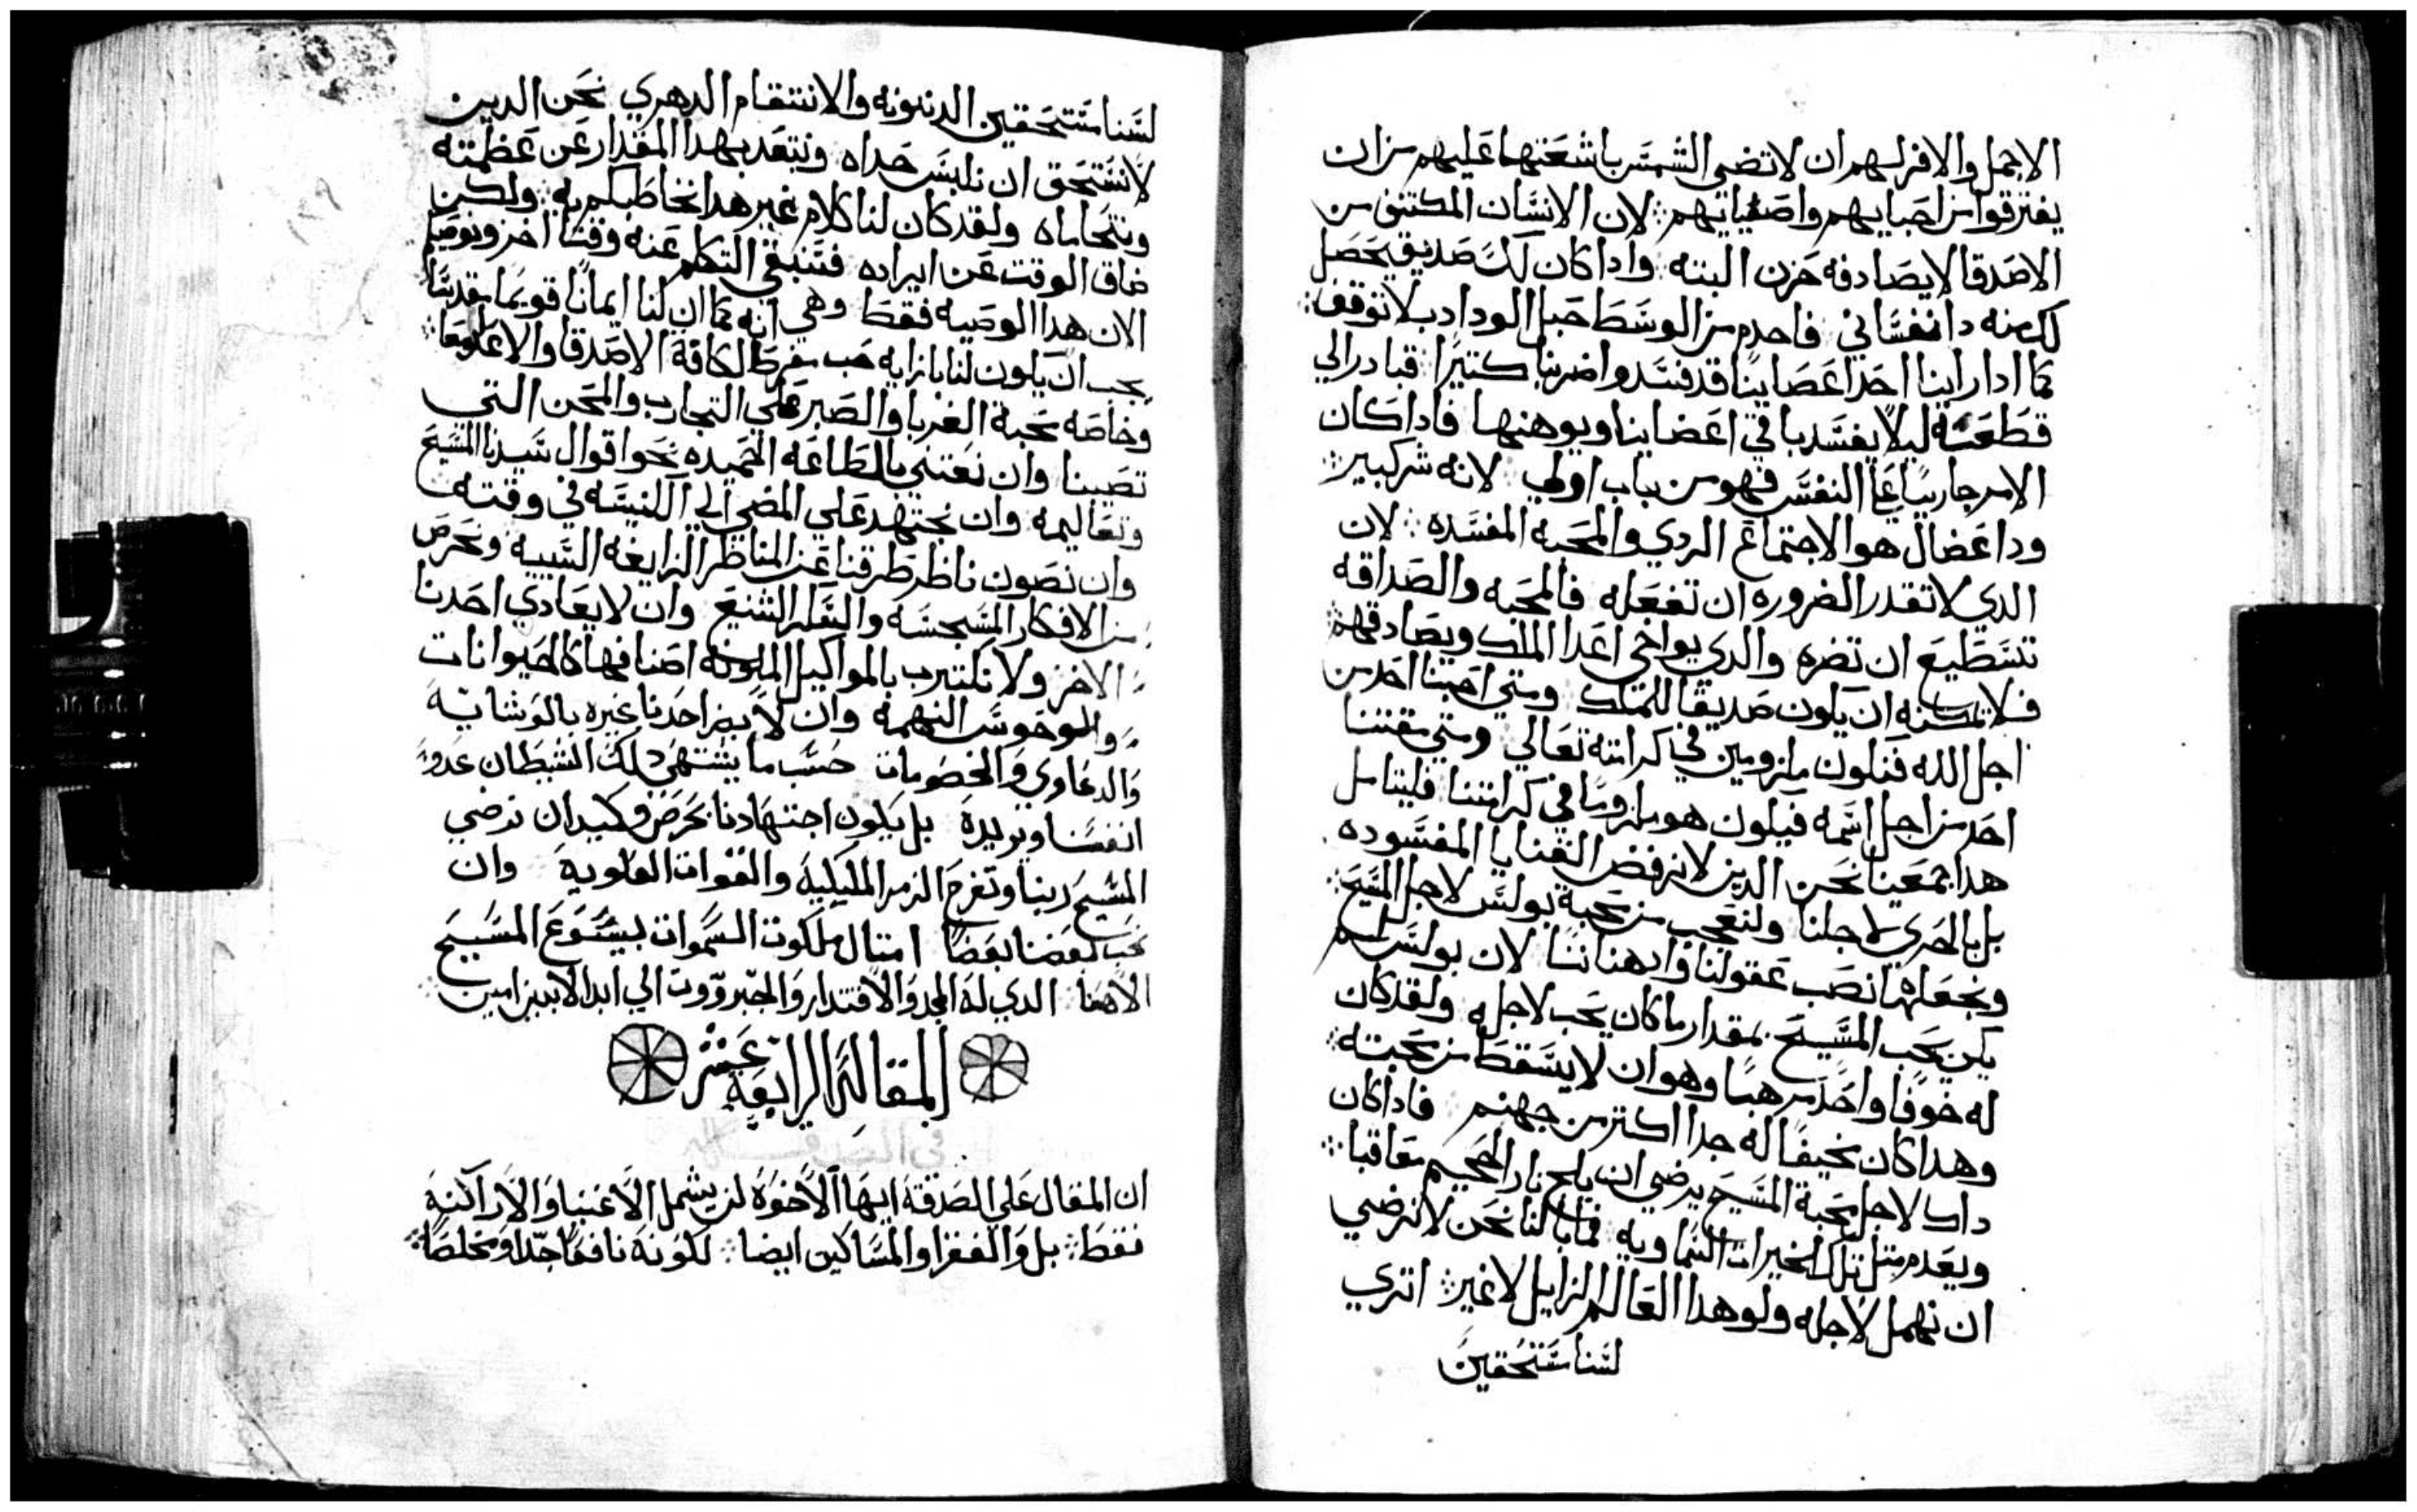 الاجمل والافر لهم ان لا تضي الشمس باشعتها عليهم من ان
يفترقوا من احبايهم واصفيايهم لان الانسان المكتفي من
الاصدقا لا يصادفه حزن البته وادا كان لك صديق يحصل
لك منه دا نفساني فاحدم من الوسط حبل الوداد بلا توقف
كما ادا راينا احد اعصابنا قد فسد واضر بنا كتيرا قبادر الي
قطعه ليلا يفسد باقي اعضاينا ويوهنها فادا كان
الامر جاريا علي النفس فهو من باب اولي لانه شر كبير
ودا عضال هو الاجتماع الردي والمحبه المفسده لان
الدي لا تقدر الضروره ان تفعله فالمحبه والصداقه
تستطيع ان تضره والدي يواخي اعدا الملك ويصادقهم
فلا يمكنه ان يكون صديقا للملك ومتي احبنا احد من
اجل الله فنكون ملزومين في كرامته تعالي ومتي مقتنا
احد من اجل اسمه فيكون هو ملزوما في كرامتنا فليتامل
هدا جمعينا نحن الدين لا نرفض القنايا المفسوده
بل بالحري لاجلنا ولنعجب من محبة بولس لاجل المسيح
ونجعلها نصب عقولنا وادهاننا لان بولس لم
يكن يحب المسيح بمقدار ما كان يحب لاجله ولقد كان
له خوفا واحد مرهبا وهو ان لا يسقط من محبته
وهدا كان مخيفا له جدا اكتر من جهنم فادا كان
داك لاجل محبة المسيح يرضي ان يلج نار الجحيم معاقبا
ويعدم متل تلك الخيرات السماويه فما بالنا نحن لا نرضي
ان نهمل لاجله ولو هدا العالم الزايل لا غير اتري
لسنا مستحقين
لسنا مستحقين الدينونه والانتقام الدهري نحن الدين
لا نستحق ان نلبس حداه ونبتعد بهدا المقدار عن عظمته
ونتحاماه ولقد كان لنا كلام غير هدا نخاطبكم به ولكن
ضاق الوقت عن ايراده فنبقي التكلم عنه وقتا اخر ونوصيكم
الان هدا الوصيه فقط وهي انه كما ان لنا ايمانا قويما مقدسا
يجب ان يكون لنا بازايه حب مفرط لكافة الاصدقا والاعدا معا
وخاصه محبة الغربا والصبر علي التجارب والمحن التي
تصيبنا وان نعتني بالطاعه الحميده نحو اقوال سيدنا المسيح
وتعاليمه وان نجتهد علي المضي الي الكنيسه في وقته
وان نصون ناظر طرفنا عن المناظر الزايغه السييه ونحرص
من الافكار النجسه والشنيع وان لا يعادي احدنا
الاخر ولا نكترب بالمواكيل الملونه اصنافها كالحيوانات
والوحوش النهمه وان لا يضر احدنا غيره بالوشايه
والدعاوي والخصومات حسب ما يشتهي دلك الشيطان عدو
انفسنا ويريده بل يكون اجتهادنا بحرص وكيد ان نرضي
المسيح ربنا وتفرح الزمر المليكيه والقوات العلويه وان
نحب بعضنا بعضا امتال ملكوت السموات بيسوع المسيح
الاهنا الدي له المجد والاقتدار والجبروت الي ابد الابدين امين
المقالة الرابعة عشر
في الصدقه
ان المقال علي الصدقة ايها الاخوة لن يشمل الاغنيا والاراكنة
فقط بل والفقرا والمساكين ايضا لكونه نافعا جدا ومخلصا